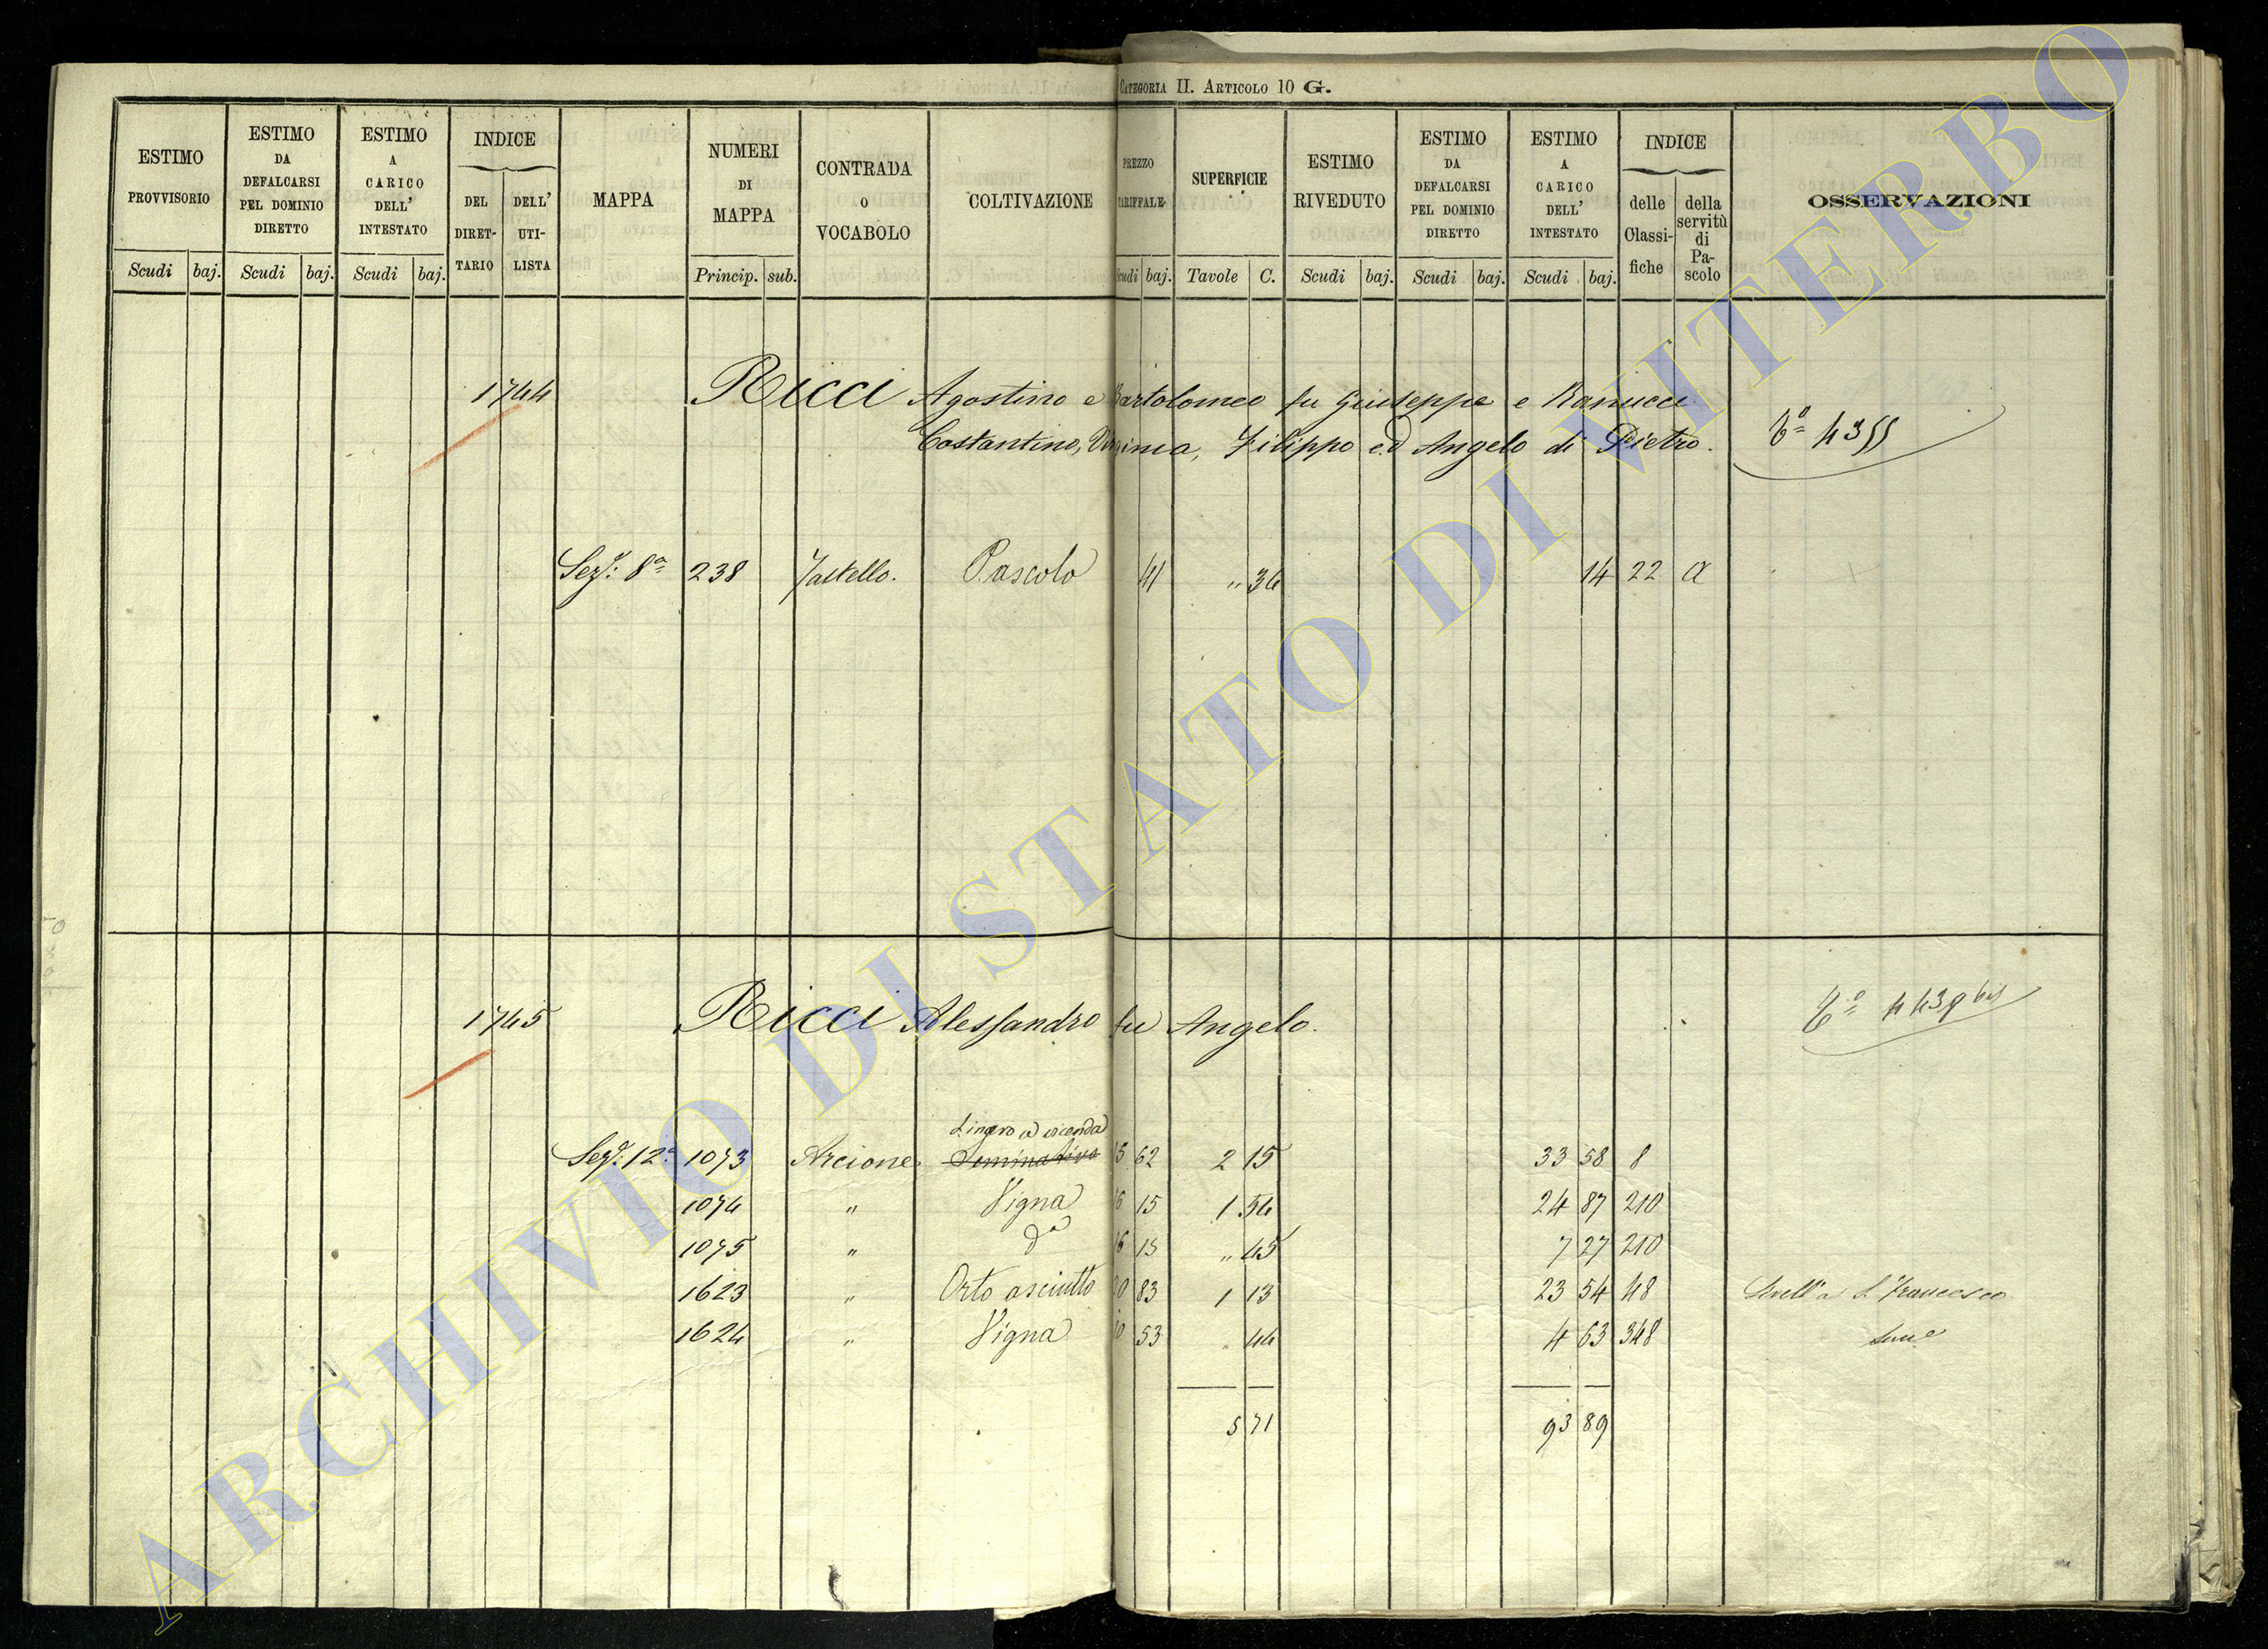 CATEGORIA II. ARTICOLO 10 G.
ESTIMO PROVVISORIO Scudi baj.
ESTIMO DA DEFALCARSI PEL DOMINIO DIRETTO Scudi baj.
ESTIMO A CARICO DELL' INTESTATO Scudi baj.
INDICE DEL DIRETTARIO DELL' UTILISTA
MAPPA
NUMERI DI MAPPA Princip. sub.
CONTRADA O VOCABOLO
COLTIVAZIONE
PREZZO TARIFFALE Scudi baj.
SUPERFICIE Tavole C.
ESTIMO RIVEDUTO Scudi baj.
ESTIMO DA DEFALCARSI PEL DOMINIO DIRETTO Scudi baj.
ESTIMO A CARICO DELL' INTESTATO Scudi baj.
INDICE delle Classifiche della servitù di Pascolo
OSSERVAZIONI
1744 Ricci Agostino e Bartolomeo fu Giuseppe e Ranucci
Costantino, Virginia, Filippo ed Angelo di Pietro.
Sez.e 8a 238 Pascolo 41 " 34 14 22 a
1745 Ricci Alessandro fu Angelo.
a vicenda
Sez.e 12a 1073 Arcione Seminativo 15 62 2 15 33 58 8
1074 " Vigna 16 15 1 54 24 87 210
1075 " do 16 15 " 45 7 27 210
1623 " Orto asciutto 20 83 1 13 23 54 48 Livello a S. Francesco
1624 " Vigna 10 53 " 44 4 63 348
5 71 93 89
ARCHIVIO DI STATO DI VITERBO